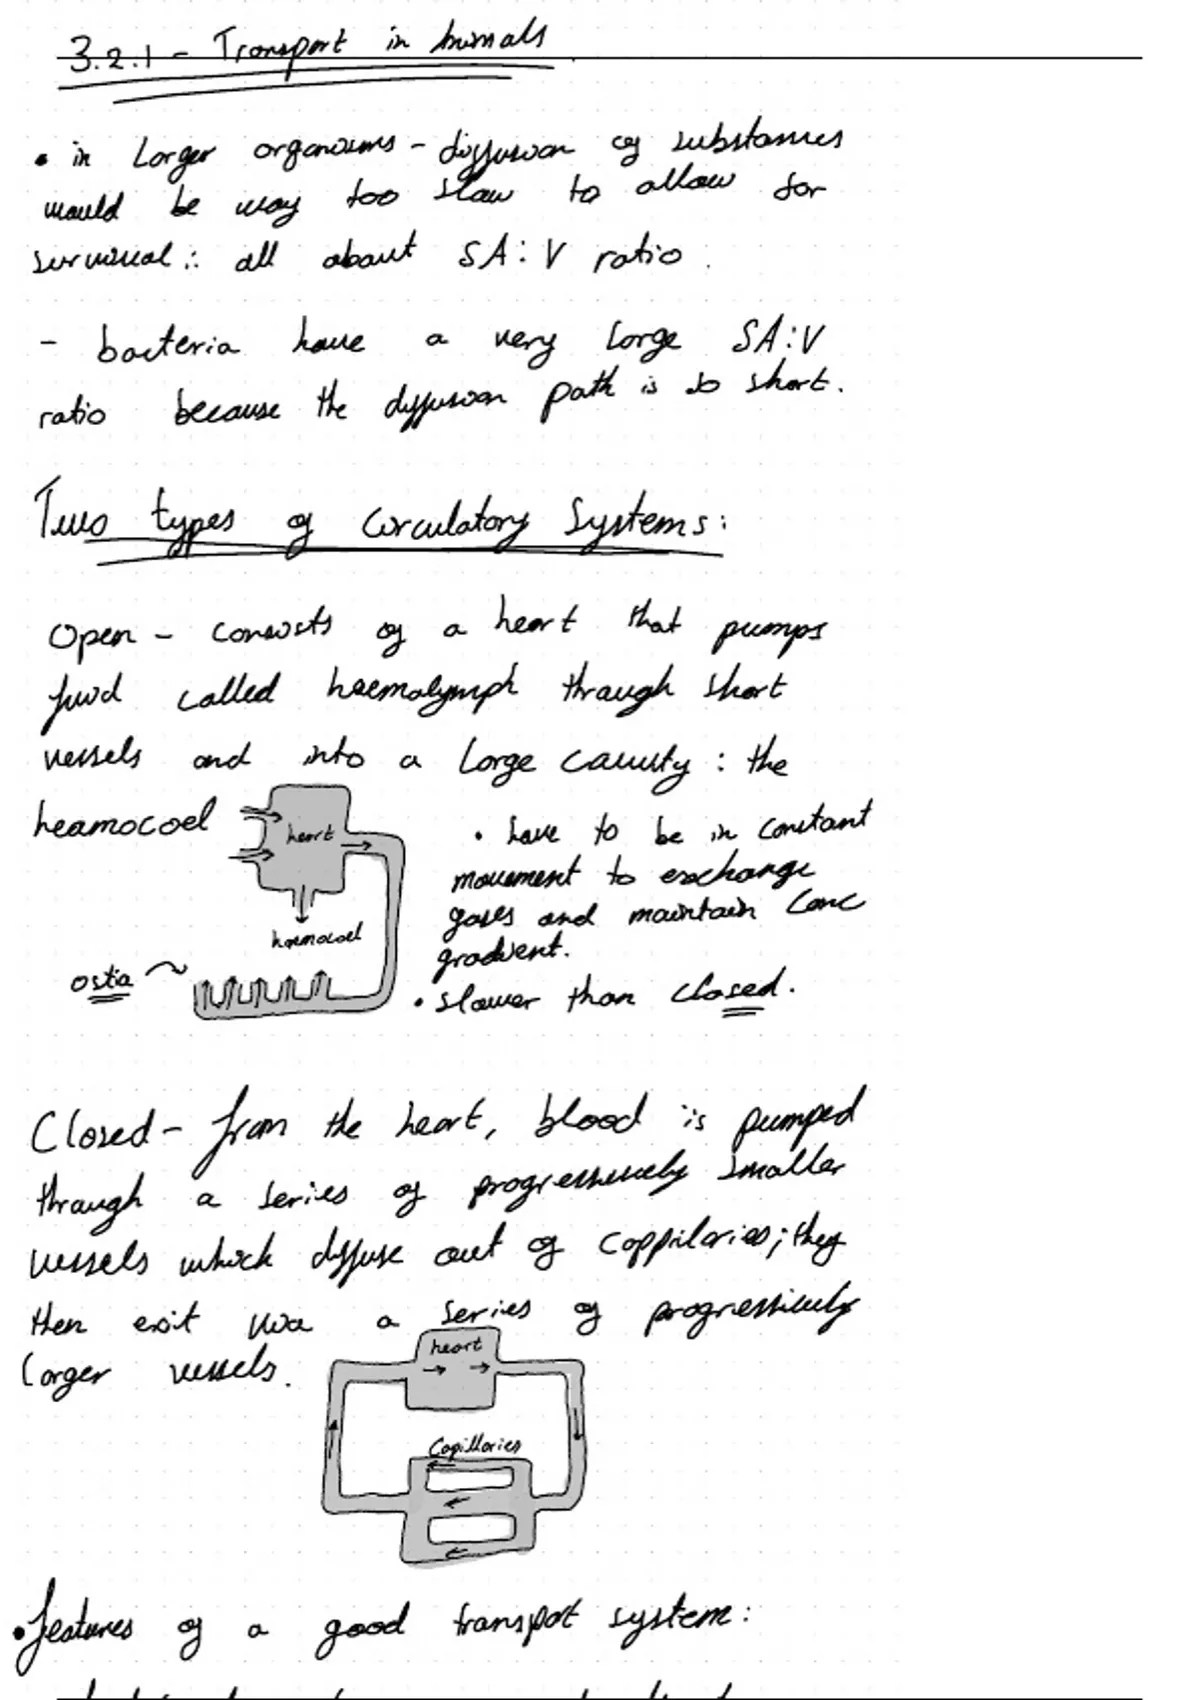 3.2.1 - Transport in humals
• in Larger organisms - diffusion of substances
would be way too slow to allow for
survival ∴ all about SA:V ratio.
- bacteria have a very large SA:V
ratio because the diffusion path is so short.
Two types of Circulatory Systems:
Open - consists of a heart that pumps
fluid called haemolymph through short
vessels and into a large cavity : the
heamocoel
heart
haemocoel
ostia
• have to be in constant
movement to exchange
gases and maintain conc
gradient.
• slower than closed.
Closed - from the heart, blood is pumped
through a series of progressively smaller
vessels which diffuse out of coppilaries; they
then exit via a series of progressively
larger vessels.
heart
Capillaries
• features of a good transport system: